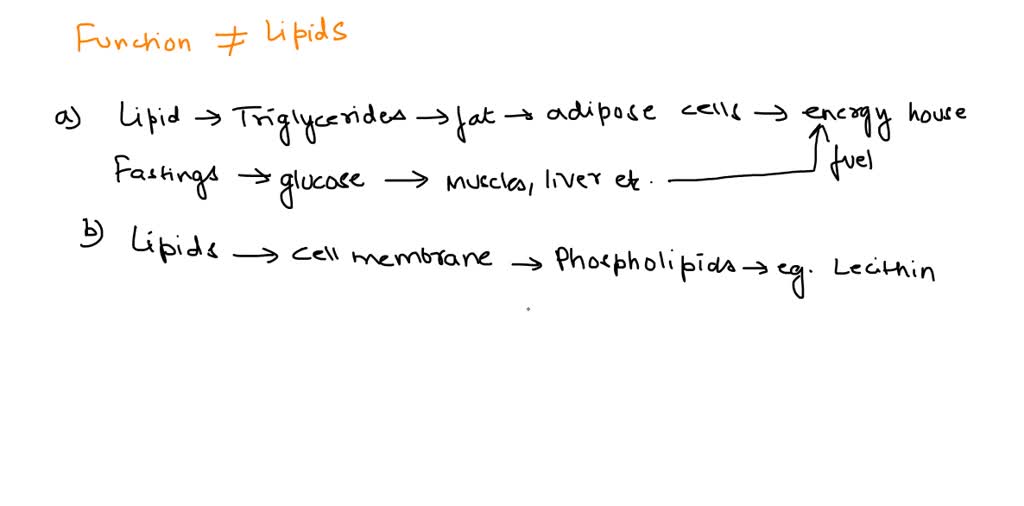 Function ≠ Lipids
a) Lipid → Triglycerides → fat → adipose cells → energy house
Fastings → glucose → Muscles, liver etc. → fuel
b) Lipids → cell membrane → Phospholipids → eg. Lecithin